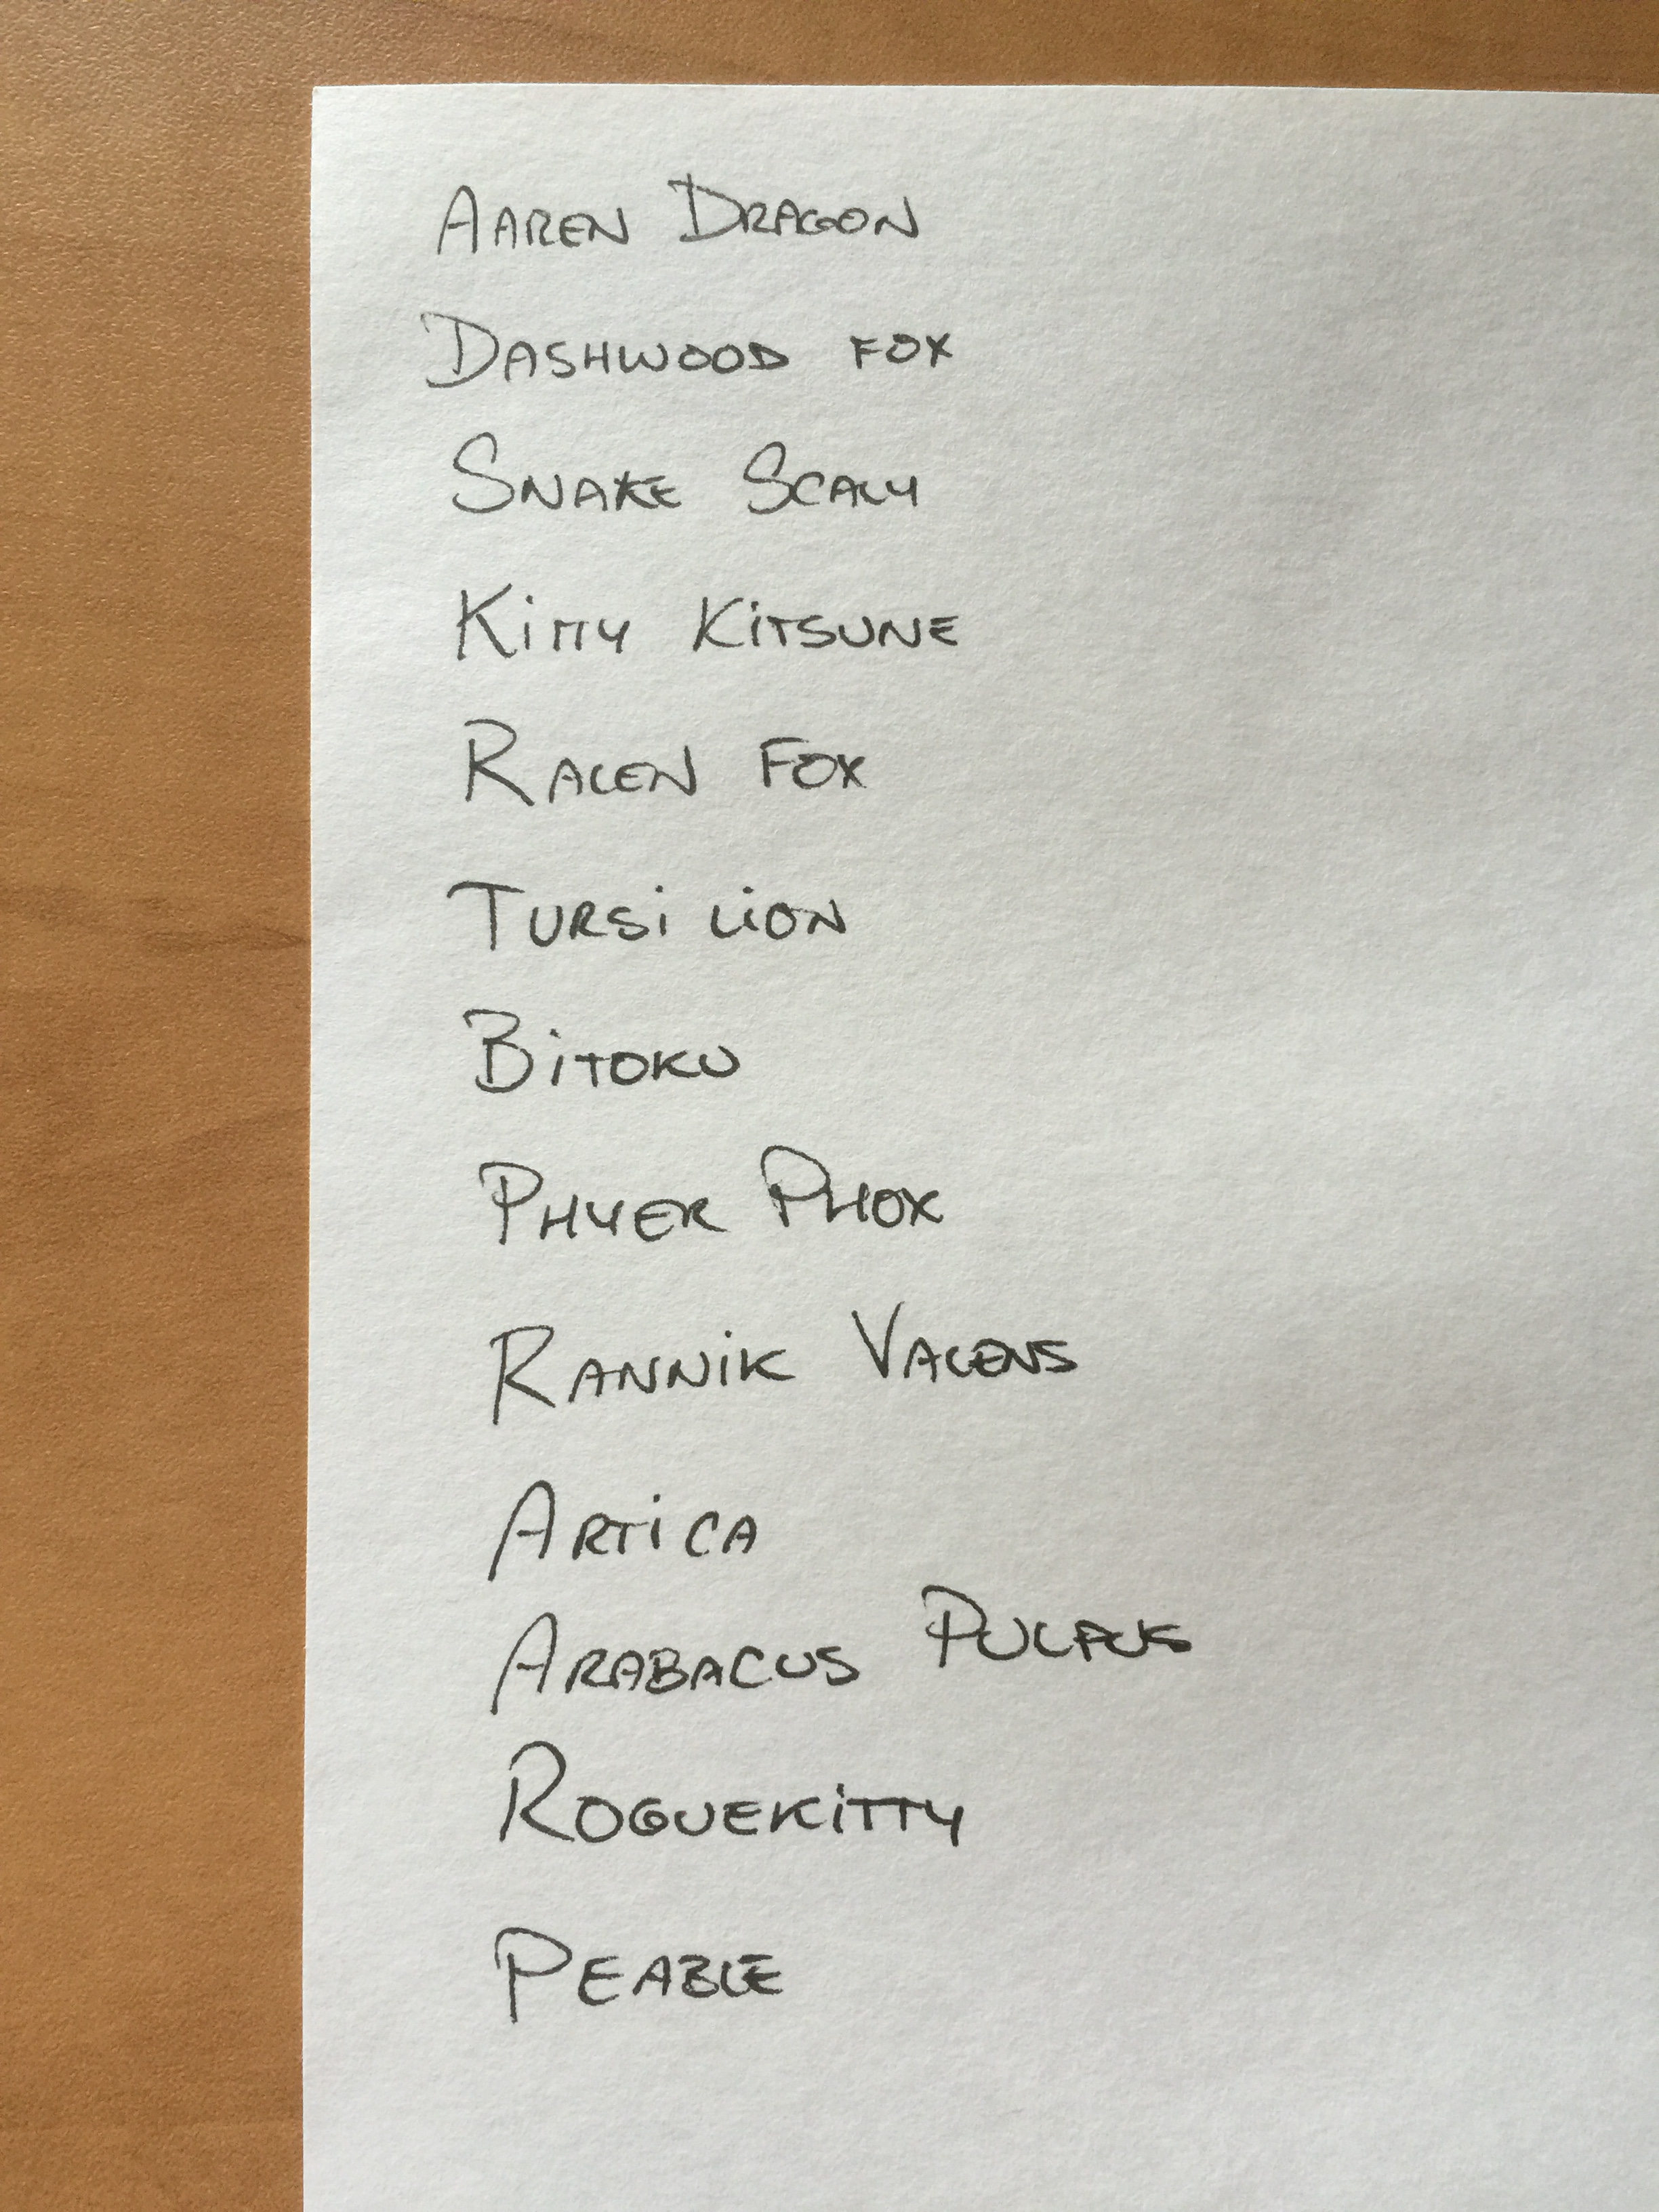 Aaren Dragon
Dashwood Fox
Snake Scaly
Kitty Kitsune
Ralen Fox
Tursi Lion
Bitoku
Phyer Phox
Rannik Valens
Artica
Arabacus
Roguekitty
Peable